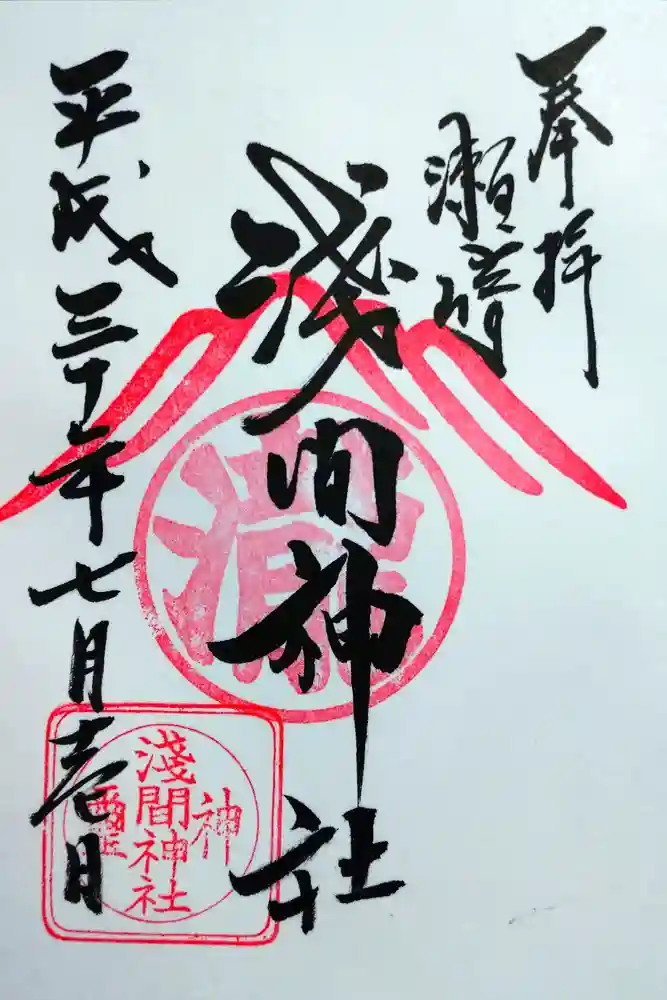 奉拝
瀬崎
浅間神社
平成三十年七月壱日
瀧
神
淺間神社
璽